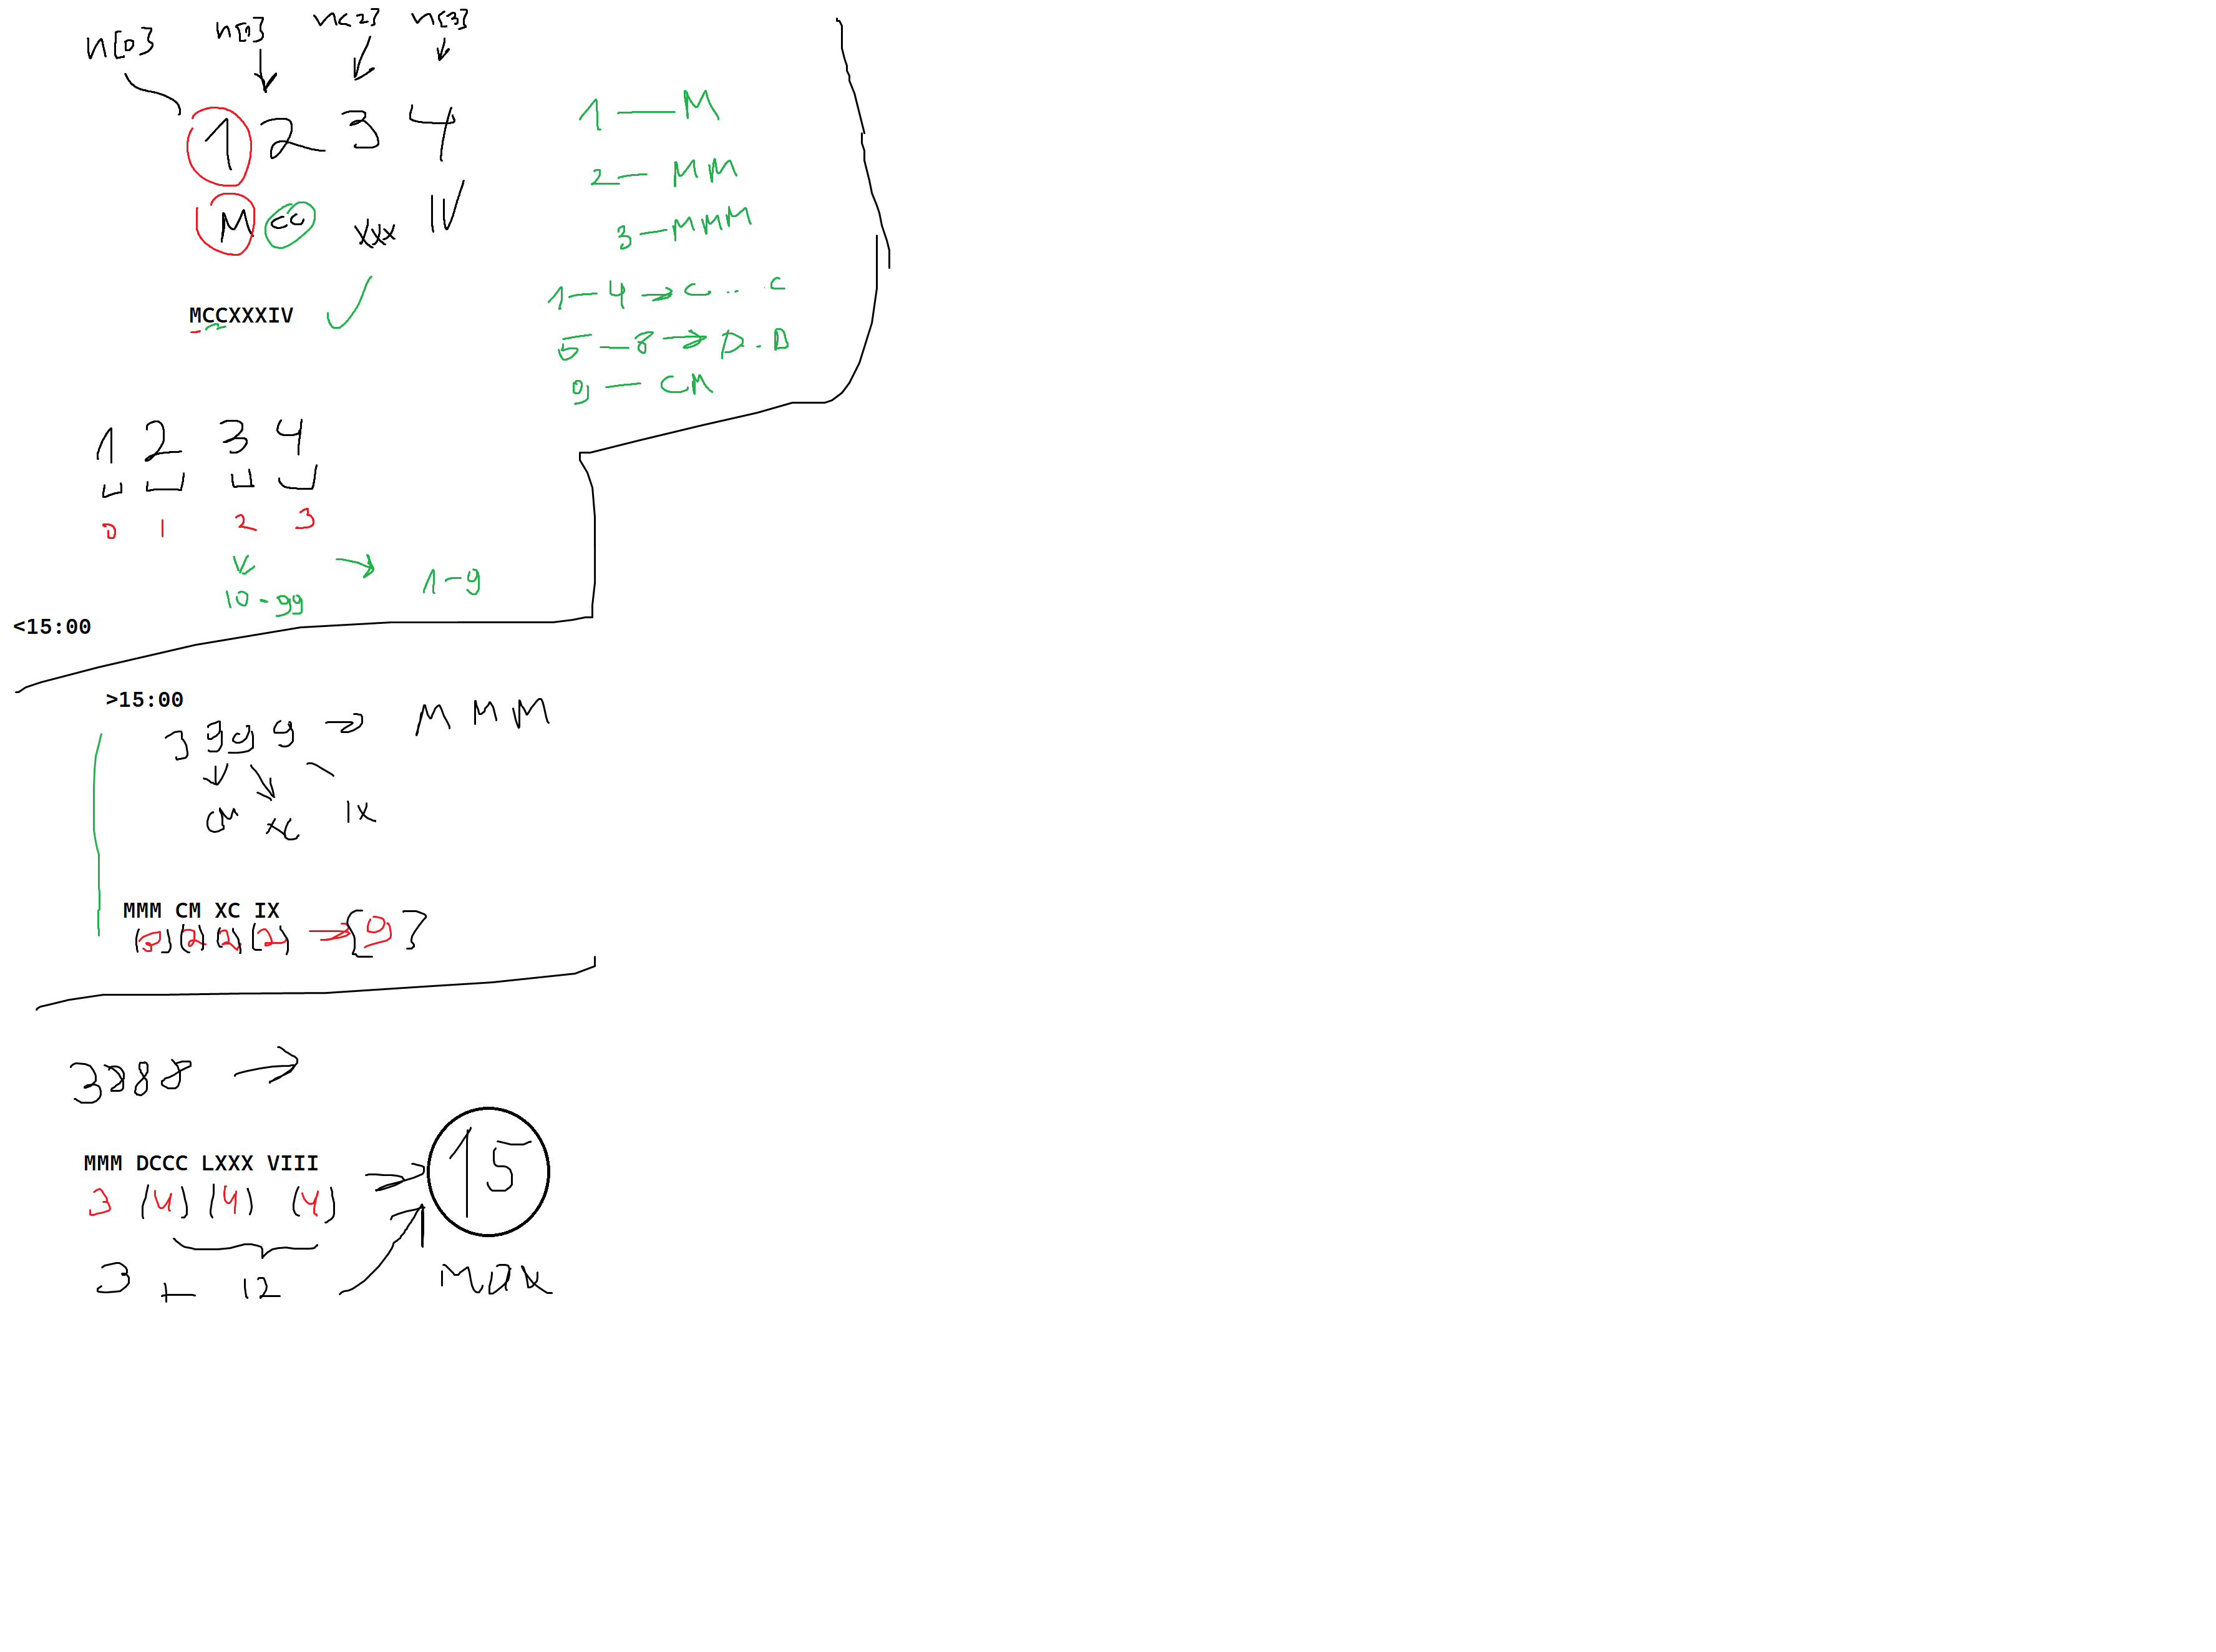 n[0] n[1] n[2] n[3]
1 2 3 4
M CC XXX IV
MCCXXXIV
1 — M
2 — MM
3 — MMM
1 — 4 → C .. C
5 — 8 → D . D
9 — CM
1 2 3 4
0 1 2 3
10 - 99 → 1-9
<15:00
>15:00
3999 → MMM
CM XC IX
MMM CM XC IX
(3) (2) (2) (2) → [9]
3888 →
MMM DCCC LXXX VIII
3 (4) (4) (4) → 15
3 + 12 MAX